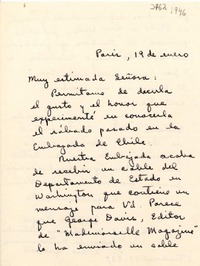 2462 1946
París, 19 de enero
Muy estimada Señora:
Permítame de decirla
el gusto y el honor que
experimenté en conocerla
el sábado pasado en la
Embajada de Chile.
Nuestra Embajada acaba
de recibir un cable del
Departamento de Estado en
Washington que contiene un
mensaje para Vd. Parece
que George Davis, Editor
de "Mademoiselle Magazine"
la ha enviado un cable